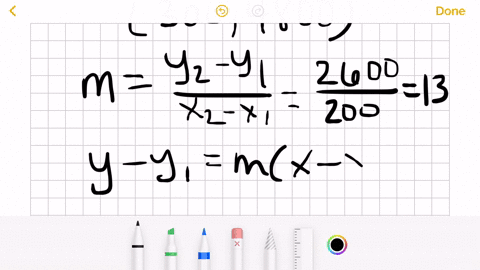 Done
m = y₂-y₁/x₂-x₁ = 2600/200 = 13
y-y₁ = m(x-